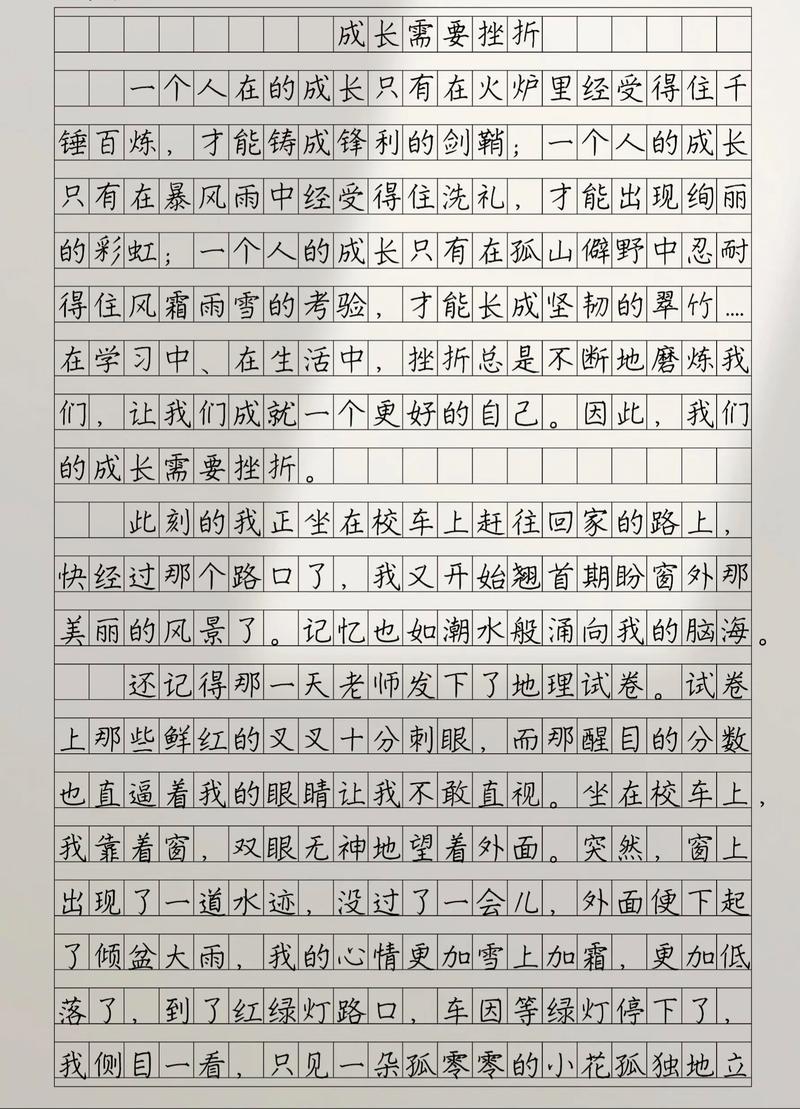 成长需要挫折
一个人在的成长只有在火炉里经受得住千
锤百炼，才能铸成锋利的剑鞘；一个人的成长
只有在暴风雨中经受得住洗礼，才能出现绚丽
的彩虹；一个人的成长只有在孤山僻野中忍耐
得住风霜雨雪的考验，才能长成坚韧的翠竹....
在学习中、在生活中，挫折总是不断地磨炼我
们，让我们成就一个更好的自己。因此，我们
的成长需要挫折。
此刻的我正坐在校车上赶往回家的路上，
快经过那个路口了，我又开始翘首期盼窗外那
美丽的风景了。记忆也如潮水般涌向我的脑海。
还记得那一天老师发下了地理试卷。试卷
上那些鲜红的叉叉十分刺眼，而那醒目的分数
也直逼着我的眼睛让我不敢直视。坐在校车上，
我靠着窗，双眼无神地望着外面。突然，窗上
出现了一道水迹，没过了一会儿，外面便下起
了倾盆大雨，我的心情更加雪上加霜，更加低
落了，到了红绿灯路口，车因等绿灯停下了，
我侧目一看，只见一朵孤零零的小花孤独地立